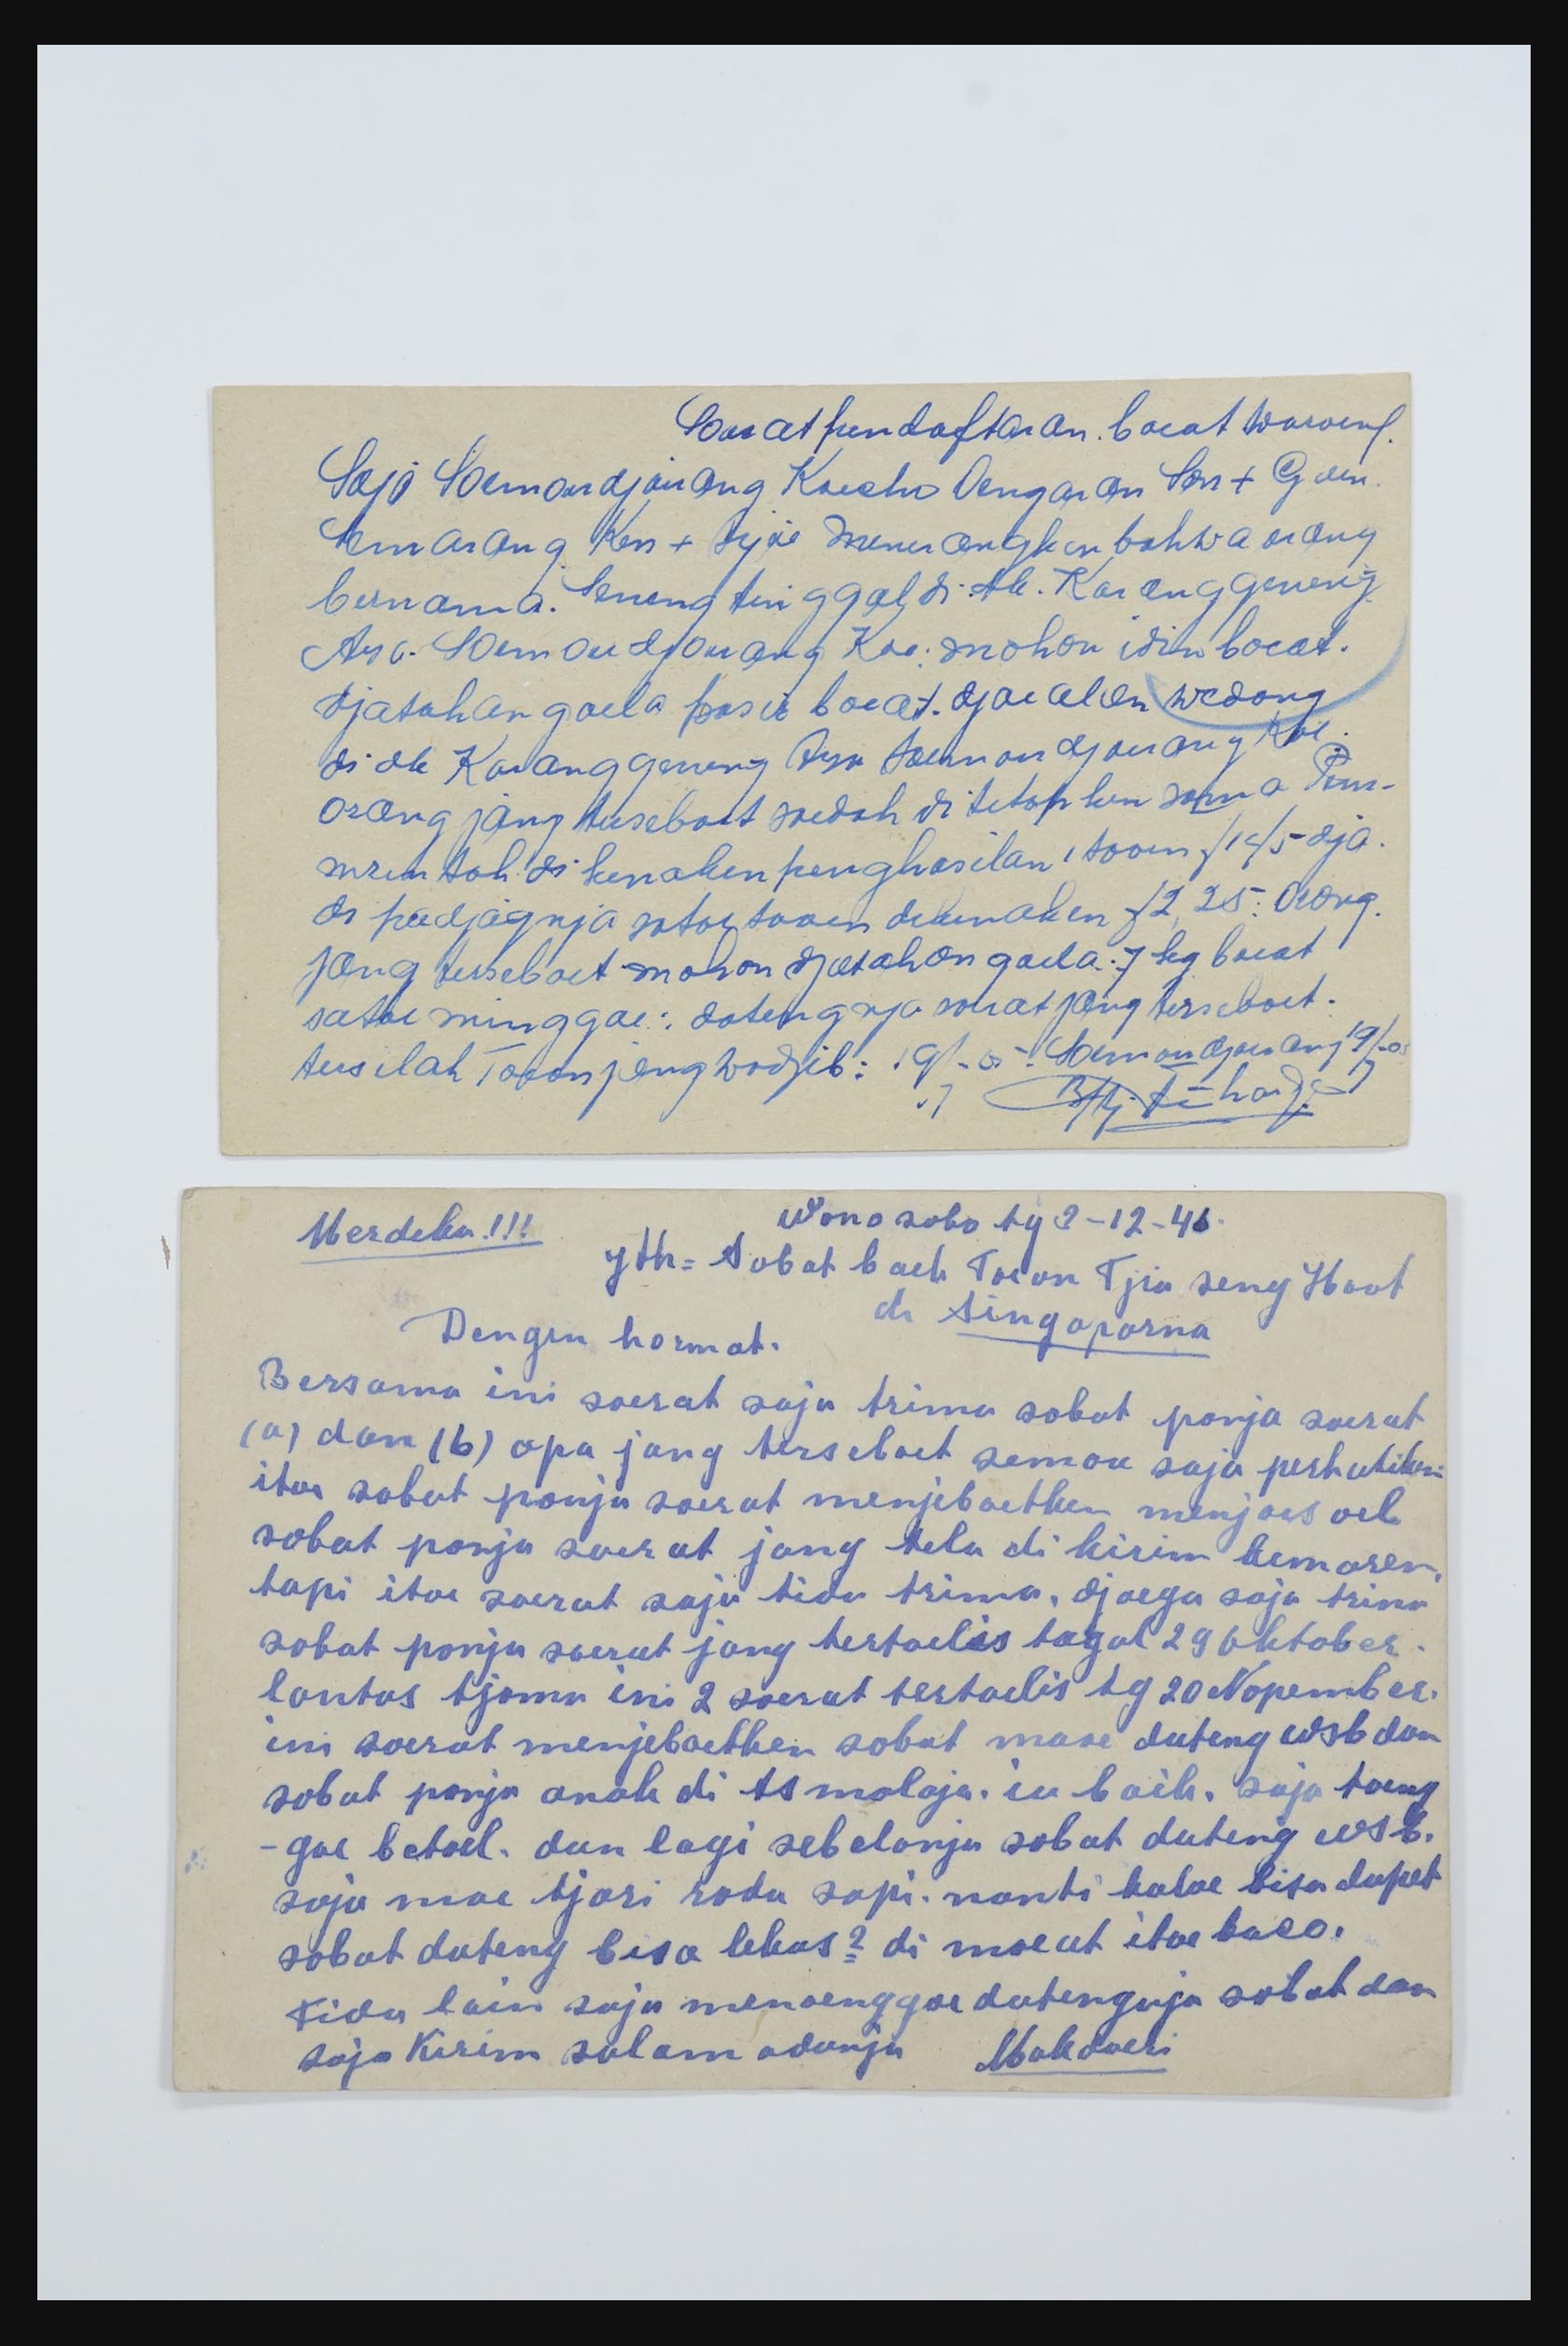 Soerat pendaftaran boeat waroeng.
Saja Soemoerdjoerang Koecho Oengaran Son + Goen.
Semarang Ken + Sjoe menerangken bahwa orang
bernama. Seneng tinggal di: dk. Karanggeneng
Aza. Soemoerdjoerang Koe. mohon idin boeat.
djatahan goela pasir boeat. djoealan wedang
di dk Karanggeneng Aza Soemoerdjoerang Koe.
Orang jang terseboet soedah di tetapken sama Pem-
mrentah di kenaken penghasilan 1 taoen dja.
di padjagnja satoe taoen dikenaken f 2,25: Orang.
jang terseboet mohon djatahan goela: 7 kg boeat
satoe minggoe: datengnja soerat jang terseboet.
terselah Toean jang wadjib: Soemoerdjoerang 19/-05
7
Merdeka!!!
Wonosobo tg 2-12-46.
yth = Sobat baek Toean Tjia seng Hoat
di Singaparna
Dengen hormat.
Bersama ini soerat saja trima sobat ponja soerat
(a) dan (b) apa jang terseboet semoa saja perhatiken
itoe sobat ponja soerat menjeboetken menjoesoel
sobat ponja soerat jang tela di kirim kemaren,
tapi itoe soerat saja tida trima, djoega saja trima
sobat ponja soerat jang tertoelis tagal 29 Oktober.
lantas tjoma ini 2 soerat tertoelis tg 20 Nopember.
ini soerat menjeboetken sobat maoe dateng wsb dan
sobat ponja anak di tsmalaja. ia baik. saja toeng
-goe betoel. dan lagi sebelonja sobat dateng wsb.
saja maoe tjari roda sapi. nanti kaloe bisa dapet
sobat dateng bisa lekas? di moeat itoe baco.
Tida lain saja menoenggoe datengnja sobat dan
saja Kirim salam adanja Makdoeri